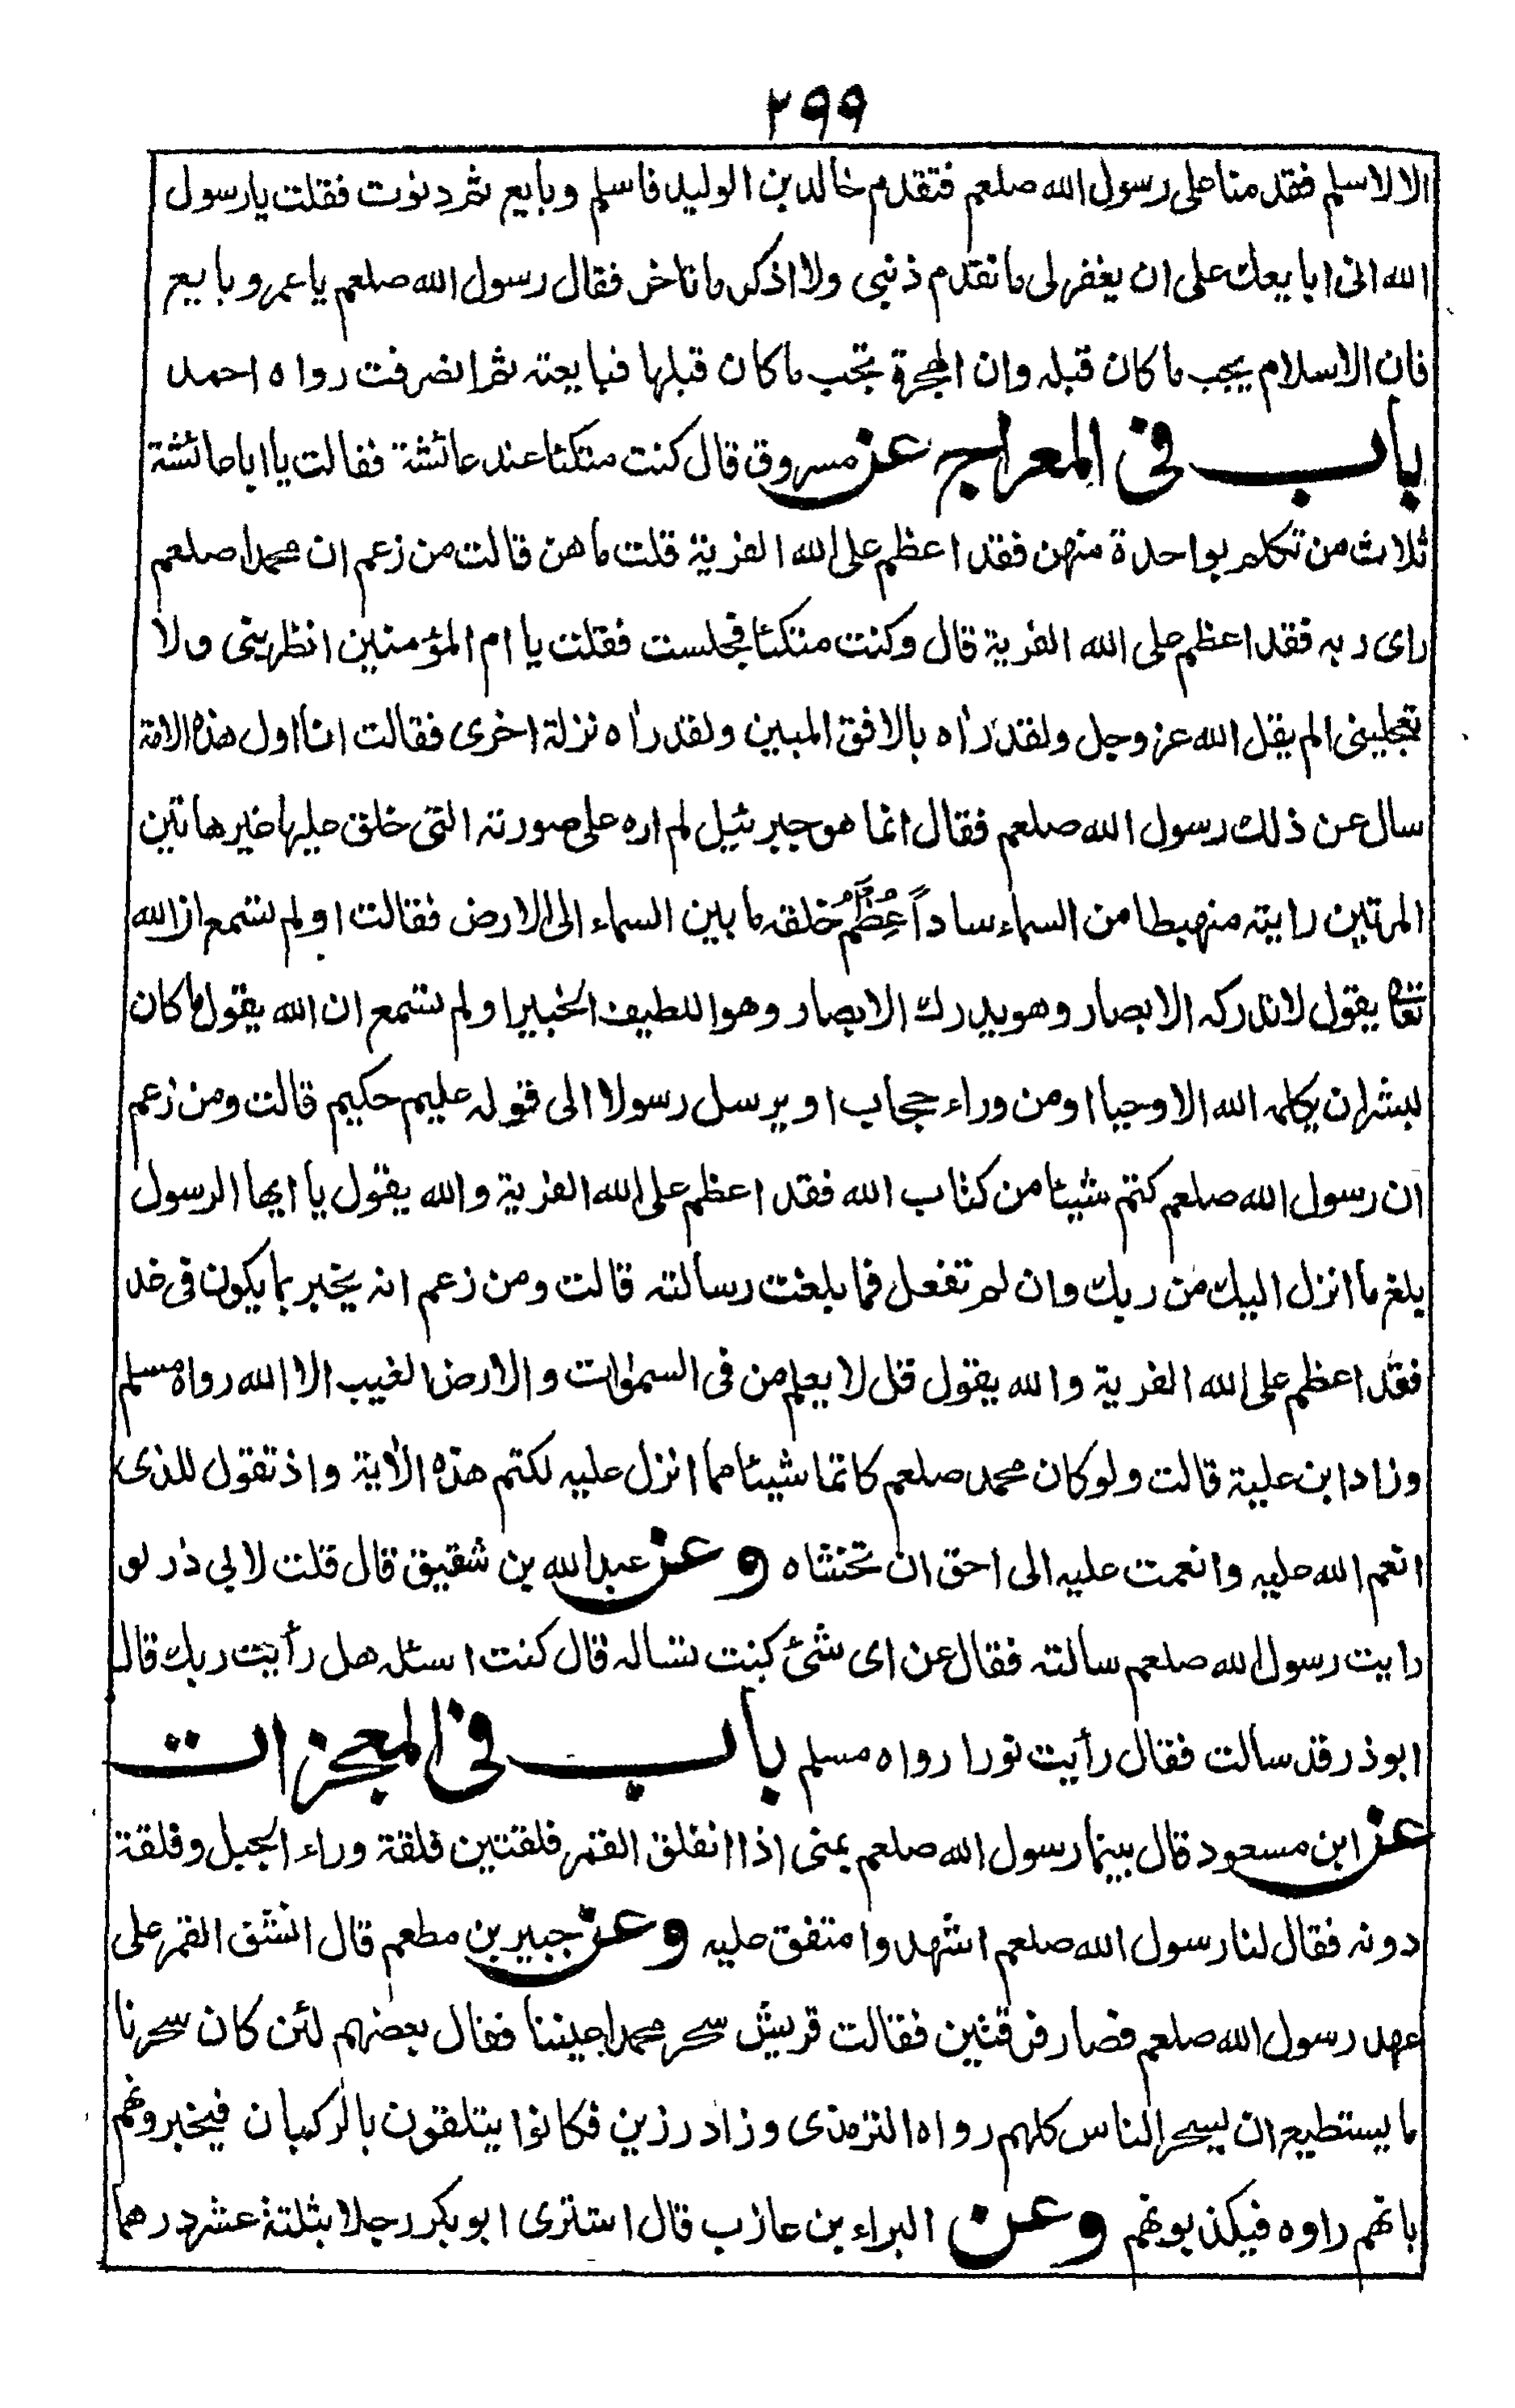 ٢٩٩
الا لاسلم فقدمنا على رسول الله صلعم فتقدم خالد بن الوليد فاسلم وبايع ثم دنوت فقلت يا رسول
الله انى ابايعك على ان يغفر لى ما تقدم ذنبى ولا اذكر ما تاخر فقال رسول الله صلعم يا عمرو بايع
فان الاسلام يجب ما كان قبله وان الهجرة تجب ما كان قبلها فبايعته ثم انصرفت رواه احمد
باب فى المعراج عن مسروق قال كنت متكئا عند عائشة فقالت يا ابا عائشة
ثلاث من تكلم بواحدة منهن فقد اعظم على الله الفرية قلت ما هن قالت من زعم ان محمدا صلعم
راى ربه فقد اعظم على الله الفرية قال وكنت متكئا فجلست فقلت يا ام المؤمنين انظرينى ولا
تعجلينى الم يقل الله عز وجل ولقد رٰاه بالافق المبين ولقد رٰاه نزلة اخرى فقالت انا اول هذه الامة
سال عن ذلك رسول الله صلعم فقال انما هو جبرئيل لم اره على صورته التى خلق عليها غير هاتين
المرتين رايته منهبطا من السماء ساداً عِظَمُ خلقه ما بين السماء الى الارض فقالت اولم تسمع ان الله
تعالى يقول لا تدركه الابصار وهو يدرك الابصار وهو اللطيف الخبير اولم تسمع ان الله يقول ما كان
لبشر ان يكلمه الله الا وحيا او من وراء حجاب او يرسل رسولا الى قوله عليم حكيم قالت ومن زعم
ان رسول الله صلعم كتم شيئا من كتاب الله فقد اعظم على الله الفرية والله يقول يا ايها الرسول
بلغ ما انزل اليك من ربك وان لم تفعل فما بلغت رسالته قالت ومن زعم انه يخبر بما يكون فى غد
فقد اعظم على الله الفرية والله يقول قل لا يعلم من فى السمٰوات والارض الغيب الا الله رواه مسلم
وزاد ابن علية قالت ولو كان محمد صلعم كاتما شيئا مما انزل عليه لكتم هذه الاٰية واذ تقول للذى
انعم الله عليه وانعمت عليه الى احق ان تخشاه وعن عبد الله بن شقيق قال قلت لابي ذر لو
رايت رسول الله صلعم سالته فقال عن اى شئ كنت تساله قال كنت اسئله هل رأيت ربك قال
ابو ذر قد سالت فقال رأيت نورا رواه مسلم باب فى المعجزات
عن ابن مسعود قال بينما رسول الله صلعم بمنى اذا انفلق القمر فلقتين فلقة وراء الجبل وفلقة
دونه فقال لنا رسول الله صلعم اشهدوا متفق عليه وعن جبير بن مطعم قال انشق القمر على
عهد رسول الله صلعم فصار فرقتين فقالت قريش سحر محمد اعيننا فقال بعضهم لئن كان سحرنا
ما يستطيع ان يسحر الناس كلهم رواه الترمذى وزاد رزين فكانوا يتلقون بالركبان فيخبرونهم
بانهم راوه فيكذبونهم وعن البراء بن عازب قال اشترى ابو بكر رجلا بثلثة عشر درهما